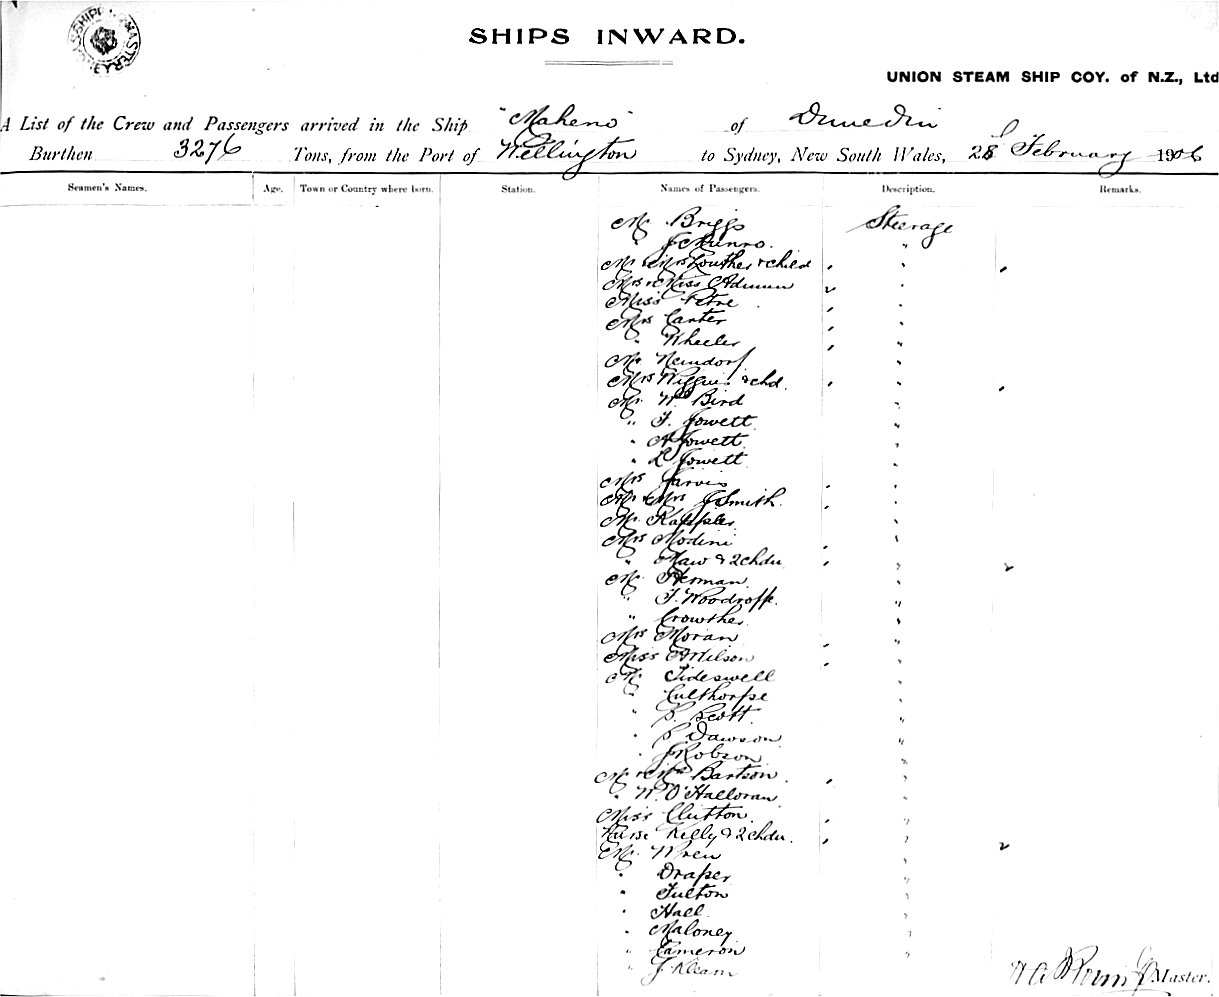 SHIPS INWARD.
UNION STEAM SHIP COY. of N.Z., Ltd
A List of the Crew and Passengers arrived in the Ship "Maheno" of Dunedin
Burthen 3276 Tons, from the Port of Wellington to Sydney, New South Wales, 28 February 1906
Seamen's Names. Age. Town or Country where born. Station. Names of Passengers. Description. Remarks.
Mr Briggs Steerage
" J Munro "
Mr & Mrs Louther & child "
Mrs & Miss "
Miss Petre "
Mrs Carter "
" Wheeler "
Mr Neindorf "
Mrs Wiggins & chd. "
Mr Wm Bird "
" F. Jowett "
" A Jowett "
" L Jowett "
Mrs Jarvis "
Mr & Mrs J Smith "
Mr Kappler "
Mrs Modini "
" Maw & 2 chdn "
Mr Herman "
" F. Woodroffe "
" Crowther "
Mrs Moran "
Miss A Wilson "
Mr Tideswell "
" Culthorpe "
" S. Scott "
" S. Dawson "
" J Robson "
Mr & Mrs Bartson "
" W. O'Halloran "
Miss Clutton "
Nurse Kelly & 2 chdn. "
Mr. Wren "
" Draper "
" Fulton "
" Hall "
" Maloney "
" Cameron "
" J Kleam
Master.